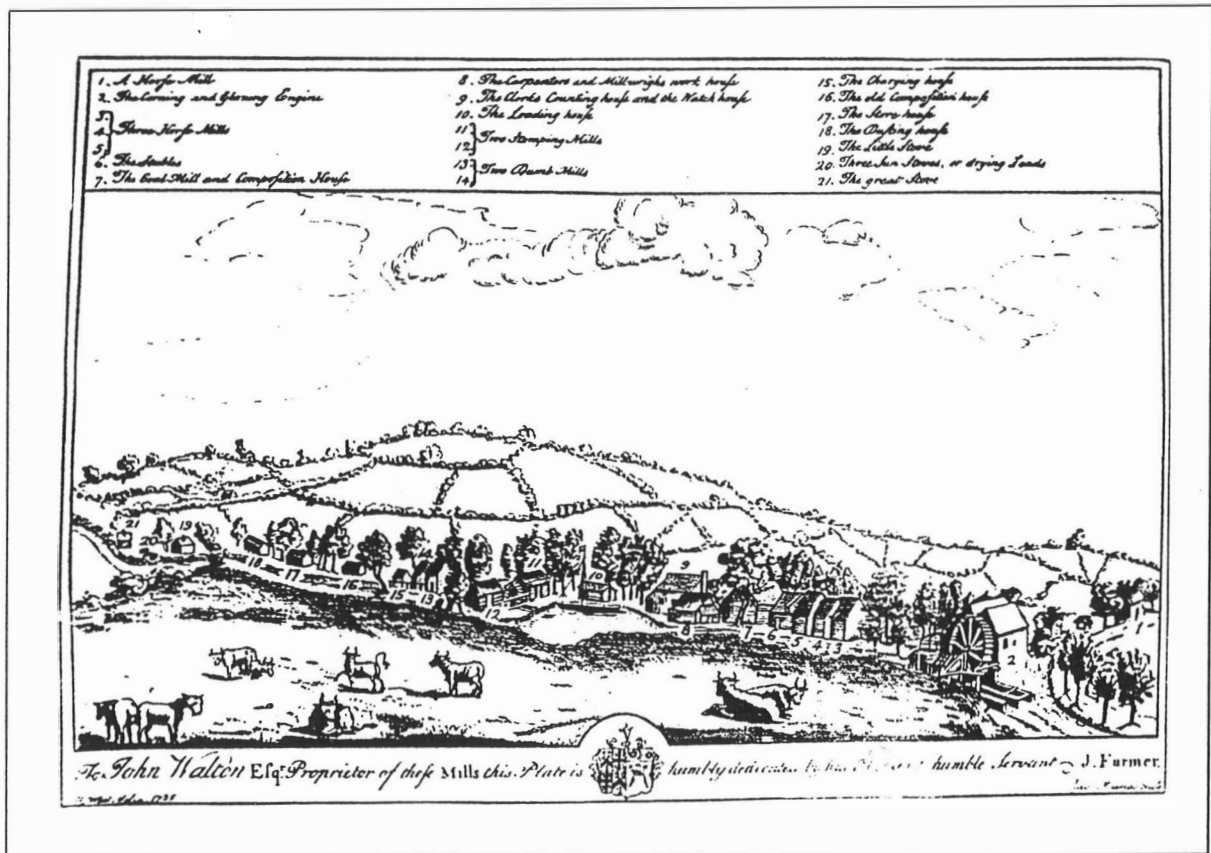 1. A Horse Mill
2. The Corning and Glazing Engine
3.
4. Three Horse Mills
5.
6. The Stables
7. The Coal Mill and Composition House
8. The Carpenters and Millwrighs work house
9. The Clerks Counting house and the Watch house
10. The Loading house
11. Two Stamping Mills
12.
13. Two Dumb Mills
14.
15. The Charging house
16. The old Composition house
17. The Store house
18. The Dusting house
19. The Little Stove
20. Three Sun Stoves, or drying Leads
21. The great Stove
21 20 19 18 17 16 15 13 12 11 10 9 8 7 6 5 4 3 2 1
To John Walton Esqr. Proprietor of these Mills this Plate is humbly dedicated by his humble Servant J. Farmer.
1735